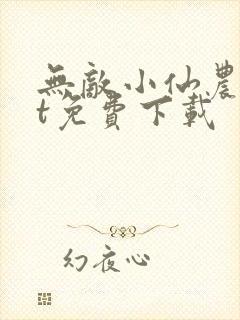 無敵小仙農
t免費下載
幻夜心